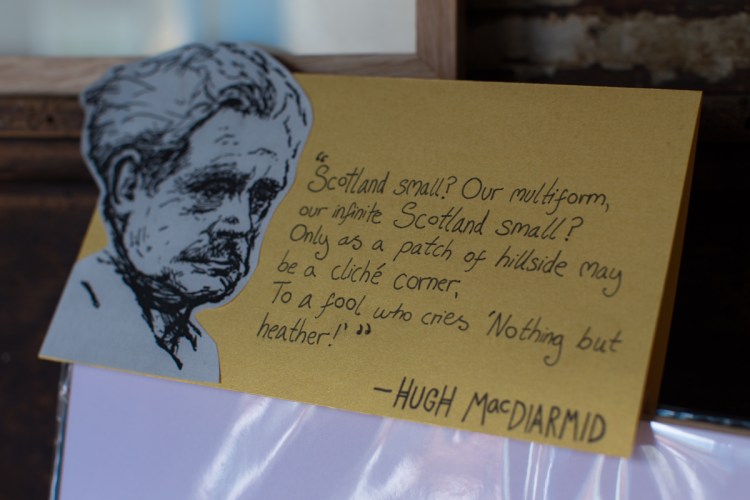 “Scotland small? Our multiform,
our infinite Scotland small?
Only as a patch of hillside may
be a cliché corner,
To a fool who cries 'Nothing but
heather!' ”
—HUGH MacDIARMID